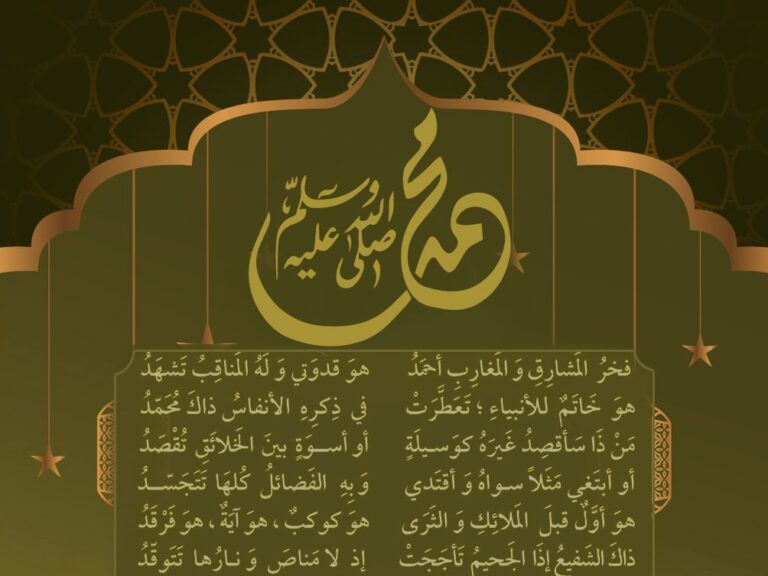 محمد صلى الله عليه وسلم
فخرُ المَشارِقِ وَ المَغارِبِ أحمَدُ هوَ قدوَتي وَ لَهُ المَناقِبُ تَشهَدُ
هوَ خَاتَمٌ للأنبياءِ ؛ تَعَطَّرَتْ في ذِكرِهِ الأنفاسُ ذاكَ مُحَمّدُ
مَنْ ذَا سَأقصِدُ غَيرَهُ كوَسيلَةٍ أو أسوَةٍ بينَ الخَلائَقِ تُقْصَدُ
أو أبتَغي مَثَلاً سواهُ وَ أقتَدي وَبِهِ الفَضائلُ كُلهَا تَتَجَسَدُ
هوَ أوَّلٌ قبلَ المَلائِكِ وَ الثَرَى هوَ كوكبٌ ، هوَ آيَةٌ ، هوَ فَرْقَدُ
ذاكَ الشَفيعُ إذَا الجَحيمُ تَأجَجَتْ إذ لا مَناصَ وَ نارُها تَتَوقّدُ